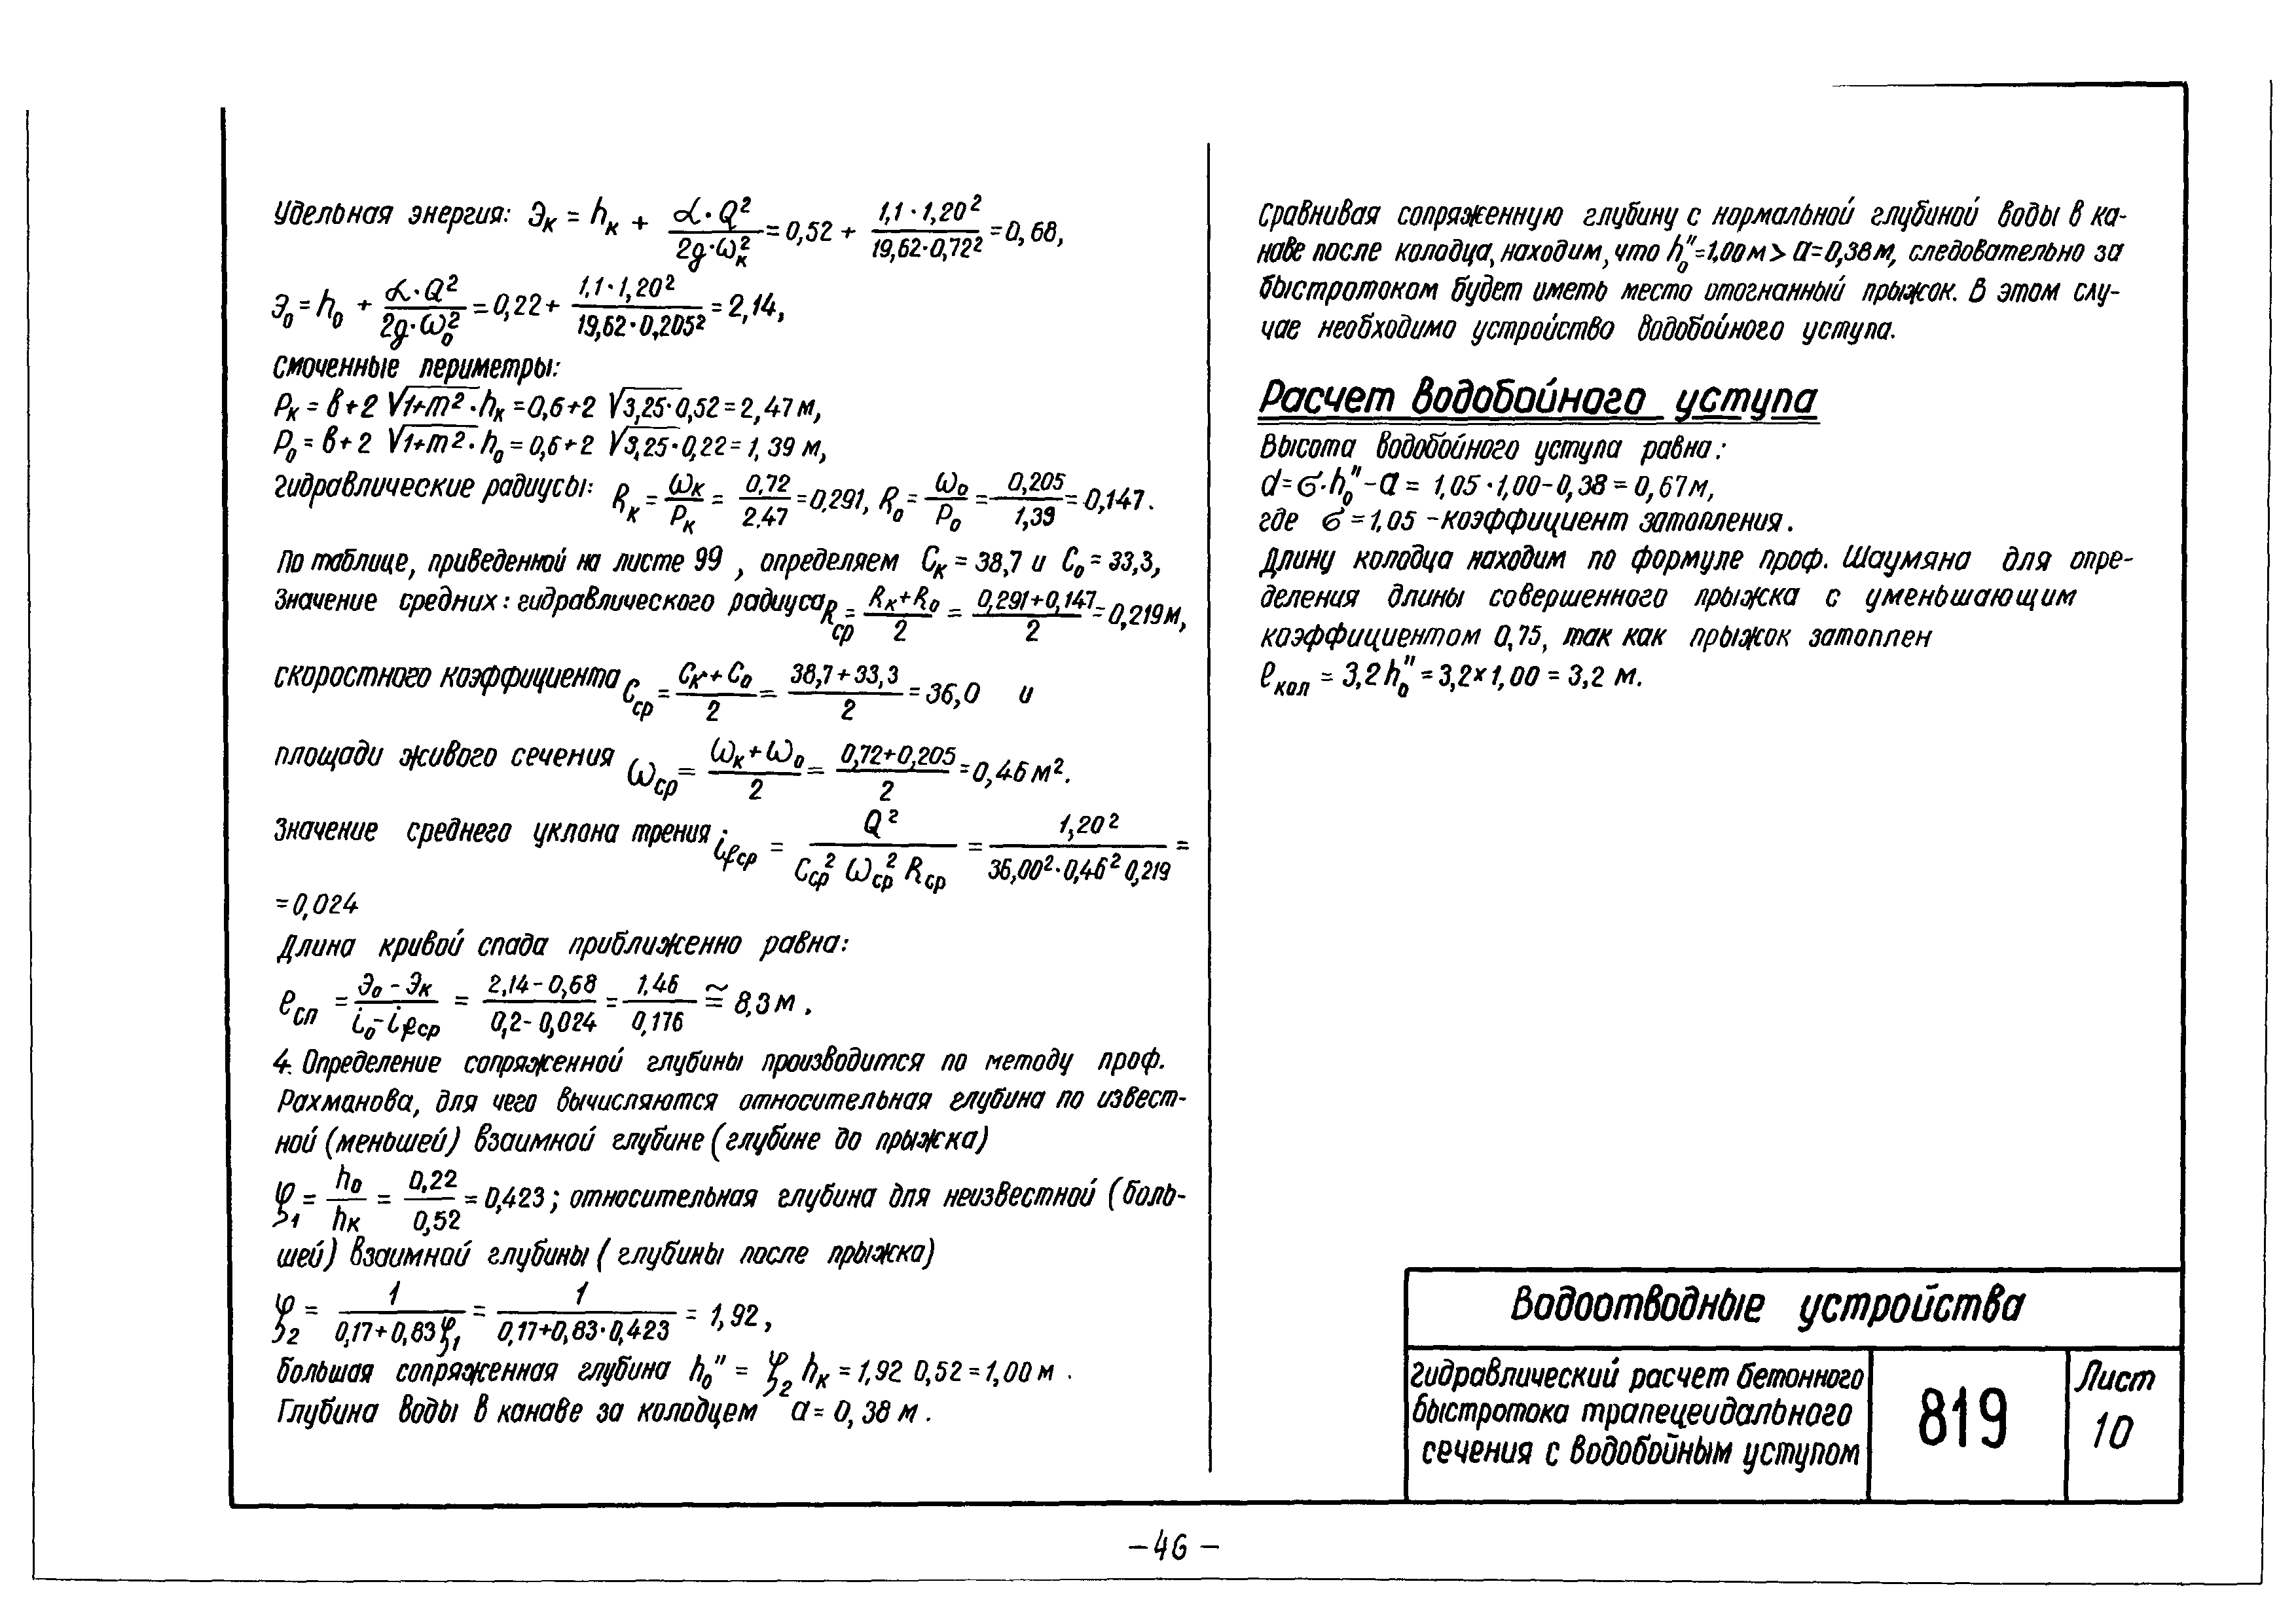 Удельная энергия: Эк = hк + α·Q²/2g·ωк² = 0,52 + 1,1·1,20²/19,62·0,72² = 0,68,
Э₀ = h₀ + α·Q²/2g·ω₀² = 0,22 + 1,1·1,20²/19,62·0,205² = 2,14,
Смоченные периметры:
Pк = в+2 √1+m²·hк = 0,6+2 √3,25·0,52 = 2,47 м,
P₀ = в+2 √1+m²·h₀ = 0,6+2 √3,25·0,22 = 1,39 м,
гидравлические радиусы: Rк = ωк/Pк = 0,72/2,47 = 0,291, R₀ = ω₀/P₀ = 0,205/1,39 = 0,147.
По таблице, приведенной на листе 99, определяем Cк = 38,7 и C₀ = 33,3,
Значение средних: гидравлического радиуса Rср = Rк+R₀/2 = 0,291+0,147/2 = 0,219м,
скоростного коэффициента Cср = Cк+C₀/2 = 38,7+33,3/2 = 36,0 и
площади живого сечения ωср = ωк+ω₀/2 = 0,72+0,205/2 = 0,46 м².
Значение среднего уклона трения ifср = Q²/Cср² ωср² Rср = 1,20²/36,00²·0,46² 0,219 =
= 0,024
Длина кривой спада приближенно равна:
ℓсп = Э₀-Эк/i₀-ifср = 2,14-0,68/0,2-0,024 = 1,46/0,176 ≅ 8,3 м.
4. Определение сопряженной глубины производится по методу проф.
Рахманова, для чего вычисляются относительная глубина по извест-
ной (меньшей) взаимной глубине (глубине до прыжка)
ξ₁ = h₀/hк = 0,22/0,52 = 0,423; относительная глубина для неизвестной (боль-
шей) взаимной глубины (глубины после прыжка)
ξ₂ = 1/0,17+0,83ξ₁ = 1/0,17+0,83·0,423 = 1,92,
большая сопряженная глубина h₀" = ξ₂ hк = 1,92 0,52 = 1,00 м.
Глубина воды в канаве за колодцем a = 0,38 м.
Сравнивая сопряженную глубину с нормальной глубиной воды в ка-
наве после колодца, находим, что h₀" = 1,00 м > a = 0,38 м, следовательно за
быстротоком будет иметь место отогнанный прыжок. В этом слу-
чае необходимо устройство водобойного уступа.
Расчет водобойного уступа
Высота водобойного уступа равна:
d = σ·h₀" - a = 1,05·1,00 - 0,38 = 0,67 м,
где σ = 1,05 - коэффициент затопления.
Длину колодца находим по формуле проф. Шаумяна для опре-
деления длины совершенного прыжка с уменьшающим
коэффициентом 0,75, так как прыжок затоплен
ℓкол = 3,2 h₀" = 3,2×1,00 = 3,2 м.
Водоотводные устройства
гидравлический расчет бетонного
быстротока трапецеидального
сечения с водобойным уступом
819
Лист
10
- 46 -